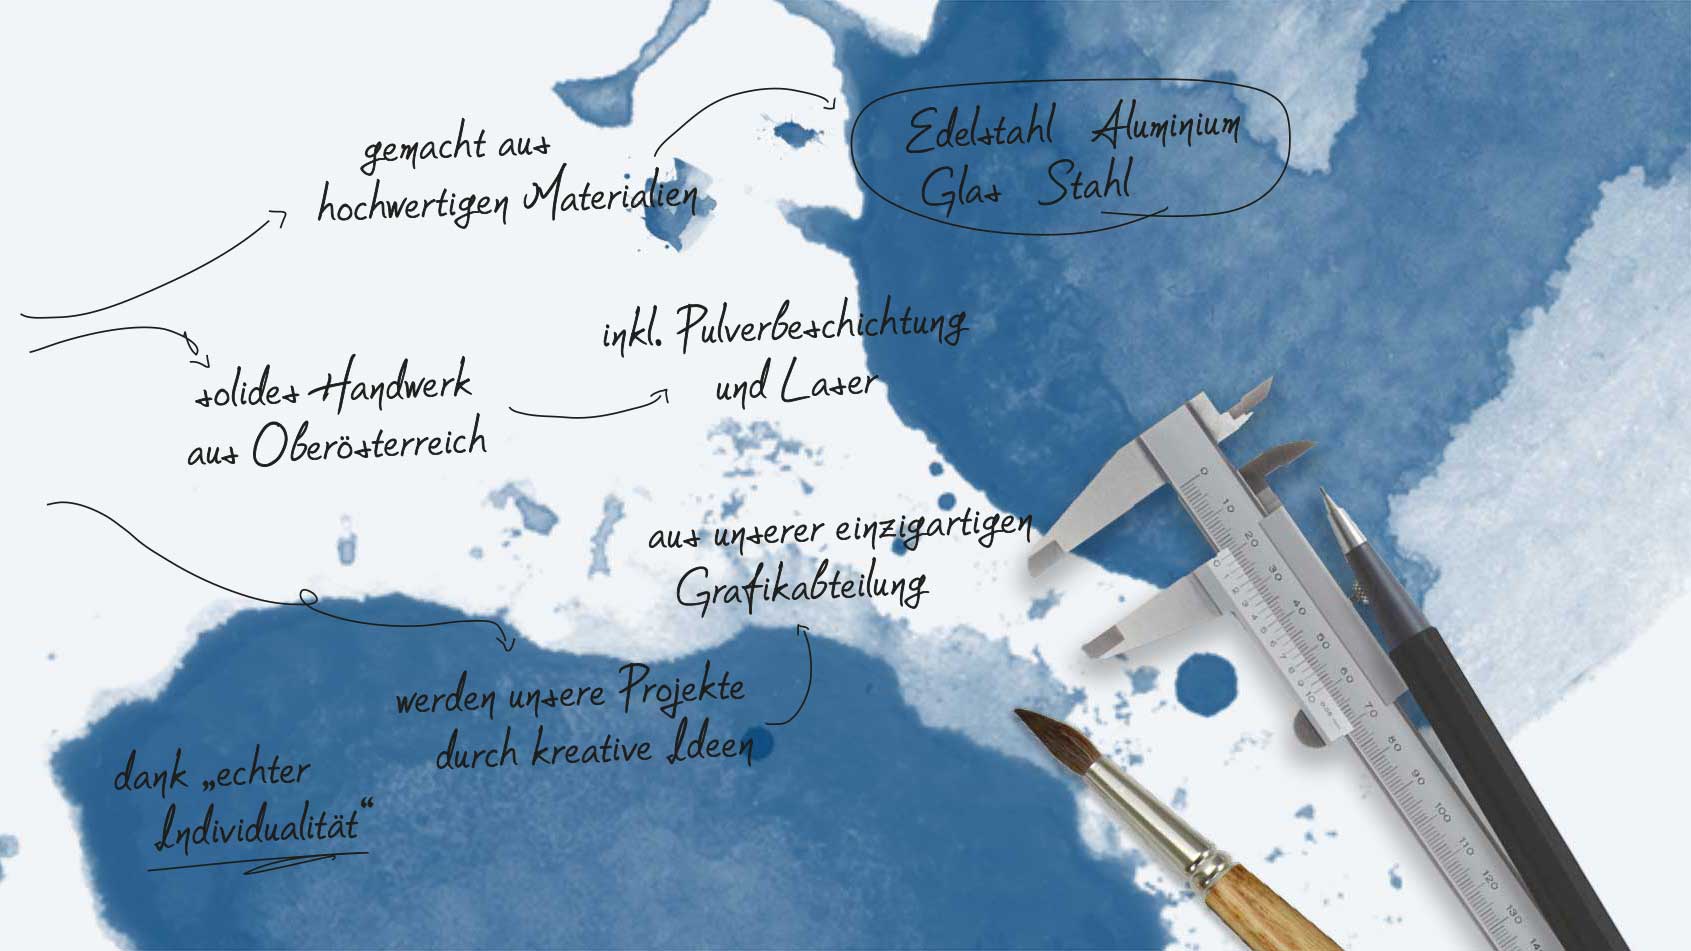 gemacht aus
hochwertigen Materialien
Edelstahl Aluminium
Glas Stahl
inkl. Pulverbeschichtung
und Laser
solides Handwerk
aus Oberösterreich
aus unserer einzigartigen
Grafikabteilung
werden unsere Projekte
durch kreative Ideen
dank „echter
Individualität“
0
10
20
30
40
50
60
70
80
90
100
110
120
130